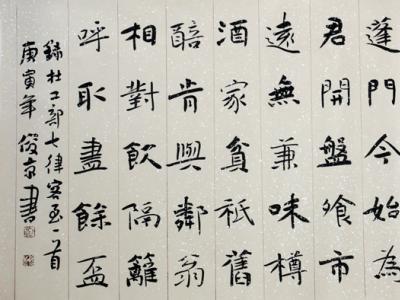 蓬門今始為
君開盤飧市
遠無兼味樽
酒家貧祇舊
醅肯與鄰翁
相對飲隔籬
呼取盡餘盃
錄杜工部七律客至一首
庚寅年俊京書